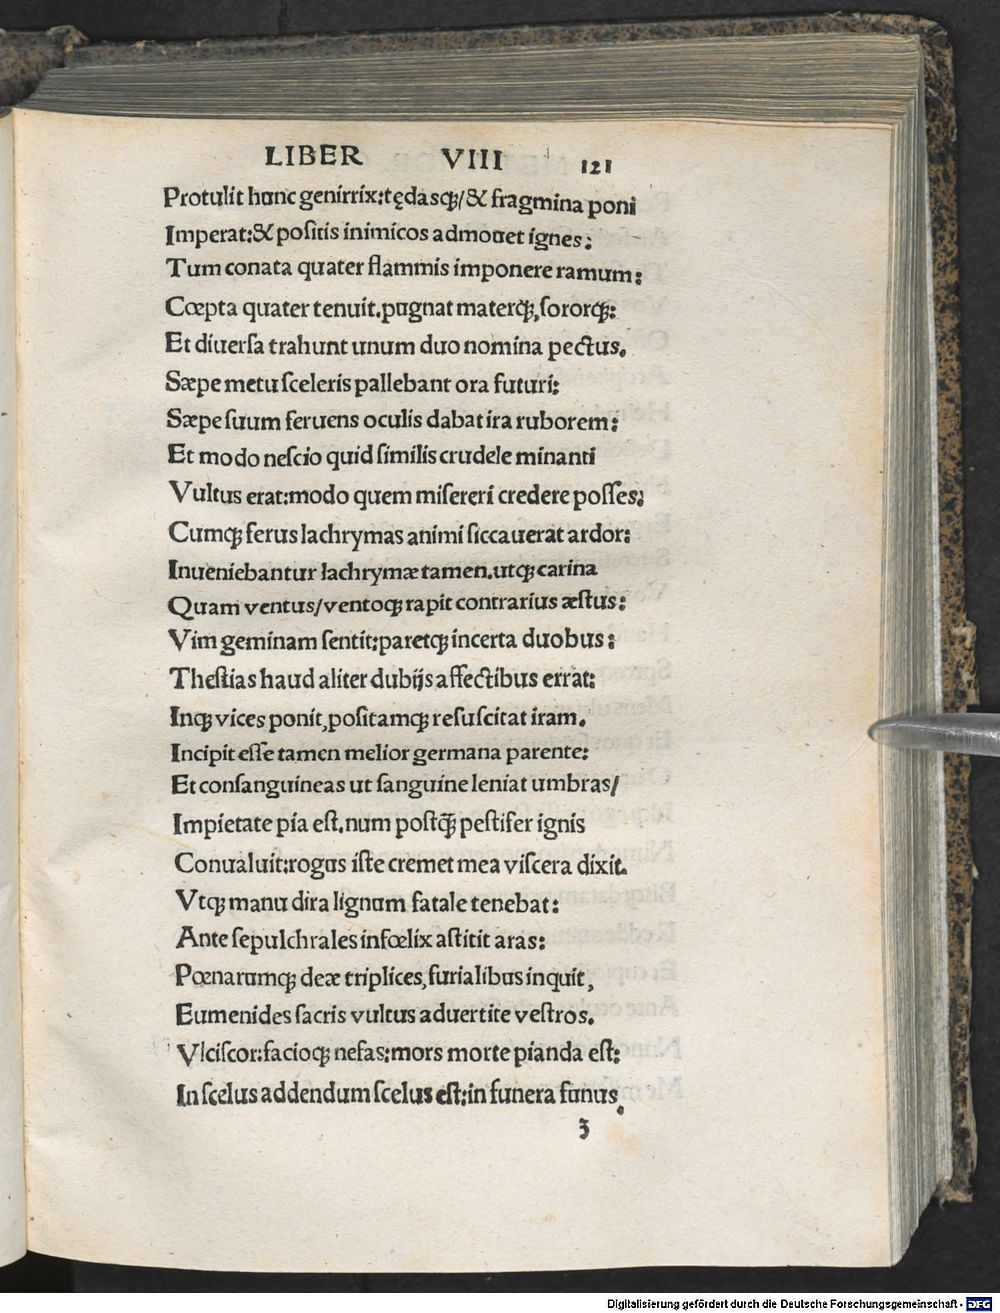 LIBER VIII 121
Protulit hunc genirrix:tędasq;/& fragmina poni
Imperat:& positis inimicos admouet ignes:
Tum conata quater flammis imponere ramum:
Cœpta quater tenuit.pugnat materq;,sororq;:
Et diuersa trahunt unum duo nomina pectus.
Sæpe metu sceleris pallebant ora futuri:
Sæpe suum feruens oculis dabat ira ruborem:
Et modo nescio quid similis crudele minanti
Vultus erat:modo quem misereri credere posses:
Cumq; ferus lachrymas animi siccauerat ardor:
Inueniebantur lachrymæ tamen.utq; carina
Quam ventus/ventoq; rapit contrarius æstus:
Vim geminam sentit:paretq; incerta duobus:
Thestias haud aliter dubijs affectibus errat:
Inq; vices ponit,positamq; resuscitat iram.
Incipit esse tamen melior germana parente:
Et consanguineas ut sanguine leniat umbras/
Impietate pia est.num postq̃ pestifer ignis
Conualuit:rogus iste cremet mea viscera dixit.
Vtq; manu dira lignum fatale tenebat:
Ante sepulchrales infœlix astitit aras:
Pœnarumq; deæ triplices,furialibus inquit,
Eumenides sacris vultus aduertite vestros.
Vlciscor:facioq; nefas:mors morte pianda est:
In scelus addendum scelus est:in funera funus.
ʒ
Digitalisierung gefördert durch die Deutsche Forschungsgemeinschaft - DFG